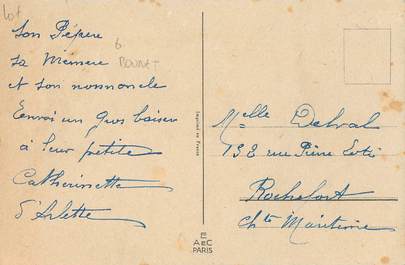 Lot
6
BOURET
son Pépère
sa Mémère
et son nononcle
Envoi un gros baiser
à leur petite
Catherinette
d'Arlette
Imprimé en France
Melle Delval
138 rue Pierre Loti
Rochefort
Chte Maritime
E
A E C
PARIS